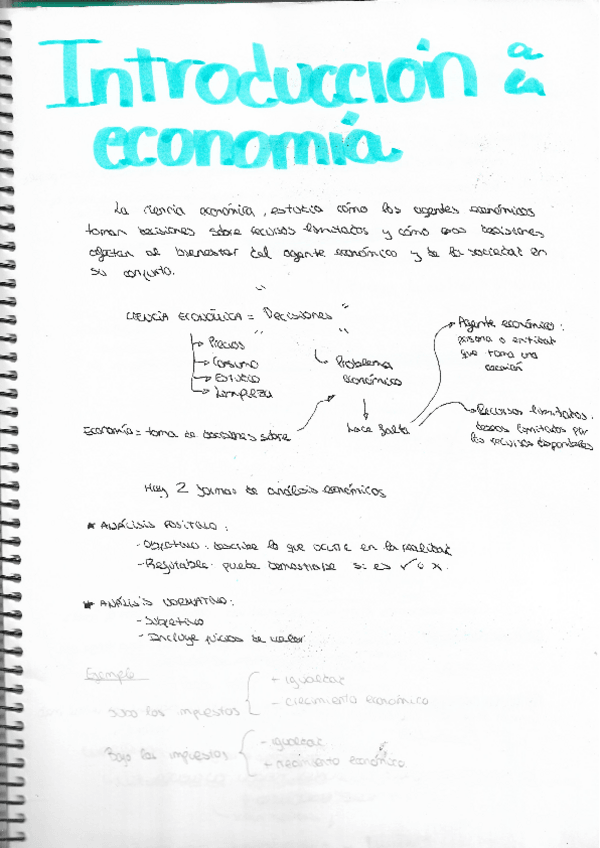 Introducción a la
economía
La ciencia económica, estudia cómo los agentes económicos
toman decisiones sobre recursos limitados y cómo esas decisiones
afectan al bienestar del agente económico y de la sociedad en
su conjunto.
CIENCIA ECONÓMICA = "Decisiones"
Precios
Consumo
Estudio
Limpieza
Problema
económico
Economía = toma de decisiones sobre
hace falta
Agente económico:
persona o entidad
que toma una
decisión
Recursos limitados:
deseos limitados por
los recursos disponibles
Hay 2 formas de análisis económicos
* ANÁLISIS POSITIVO:
- Objetivo: describe lo que ocurre en la realidad
- Refutable: puede demostrarse si es ✓ o x.
* ANÁLISIS NORMATIVO:
- Subjetivo
- Incluye juicios de valor
Ejemplo
Subo los impuestos
+ igualdad
- crecimiento económico
Bajo los impuestos
- igualdad
+ crecimiento económico